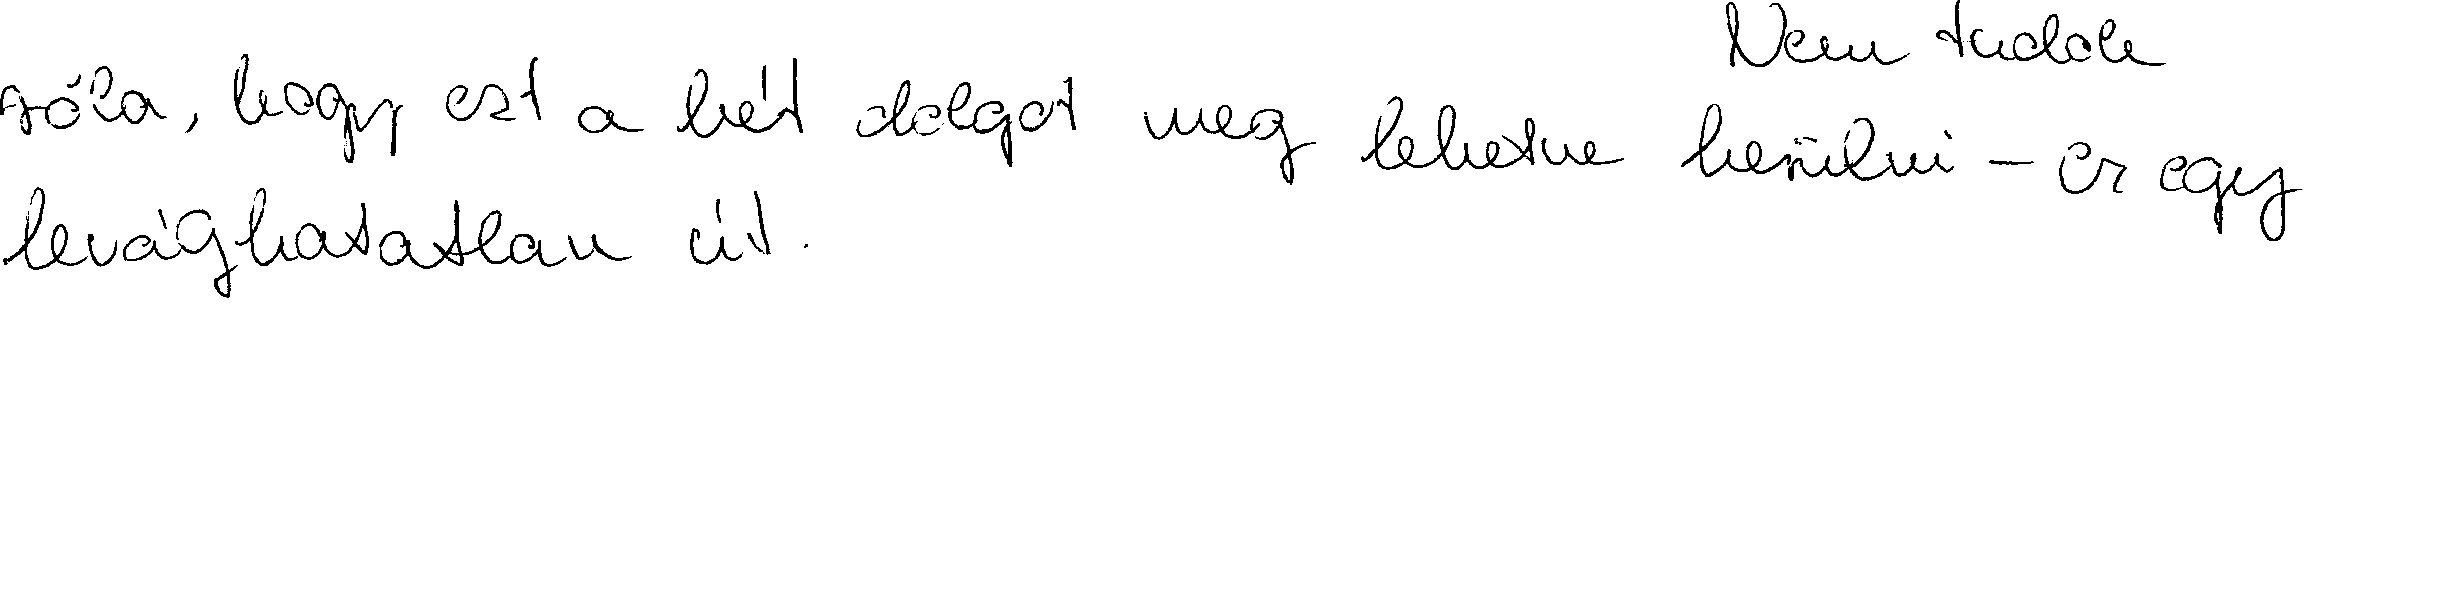 Nem tudok
róla, hogy ezt a két dolgot meg lehetne kerülni – ez egy
levághatatlan út.